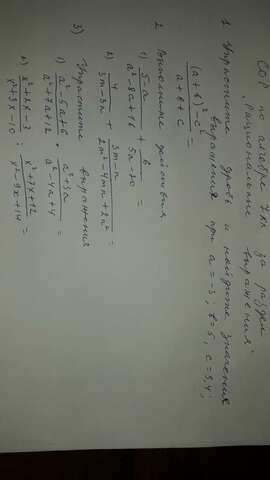 СОР по алгебре 7 кл за раздел
"Рациональные выражения"
1 Упростите дробь и найдите значение
выражения при a = -3; b = 5, c = 3,4;
((a+b)² - c²)/(a+b+c) =
2 Выполните действия
1) (5-a)/(a²-8a+16) + 6/(5a-20) =
2) 4/(3m-3n) + (3m-n)/(2m²-4mn+2n²) =
3) Упростите выражения
1) (a²-5a+6)/(a²+7a+12) · (a²+3a)/(a²-4a+4) =
2) (x²+2x-3)/(x²+3x-10) : (x²+7x+12)/(x²-9x+14) =